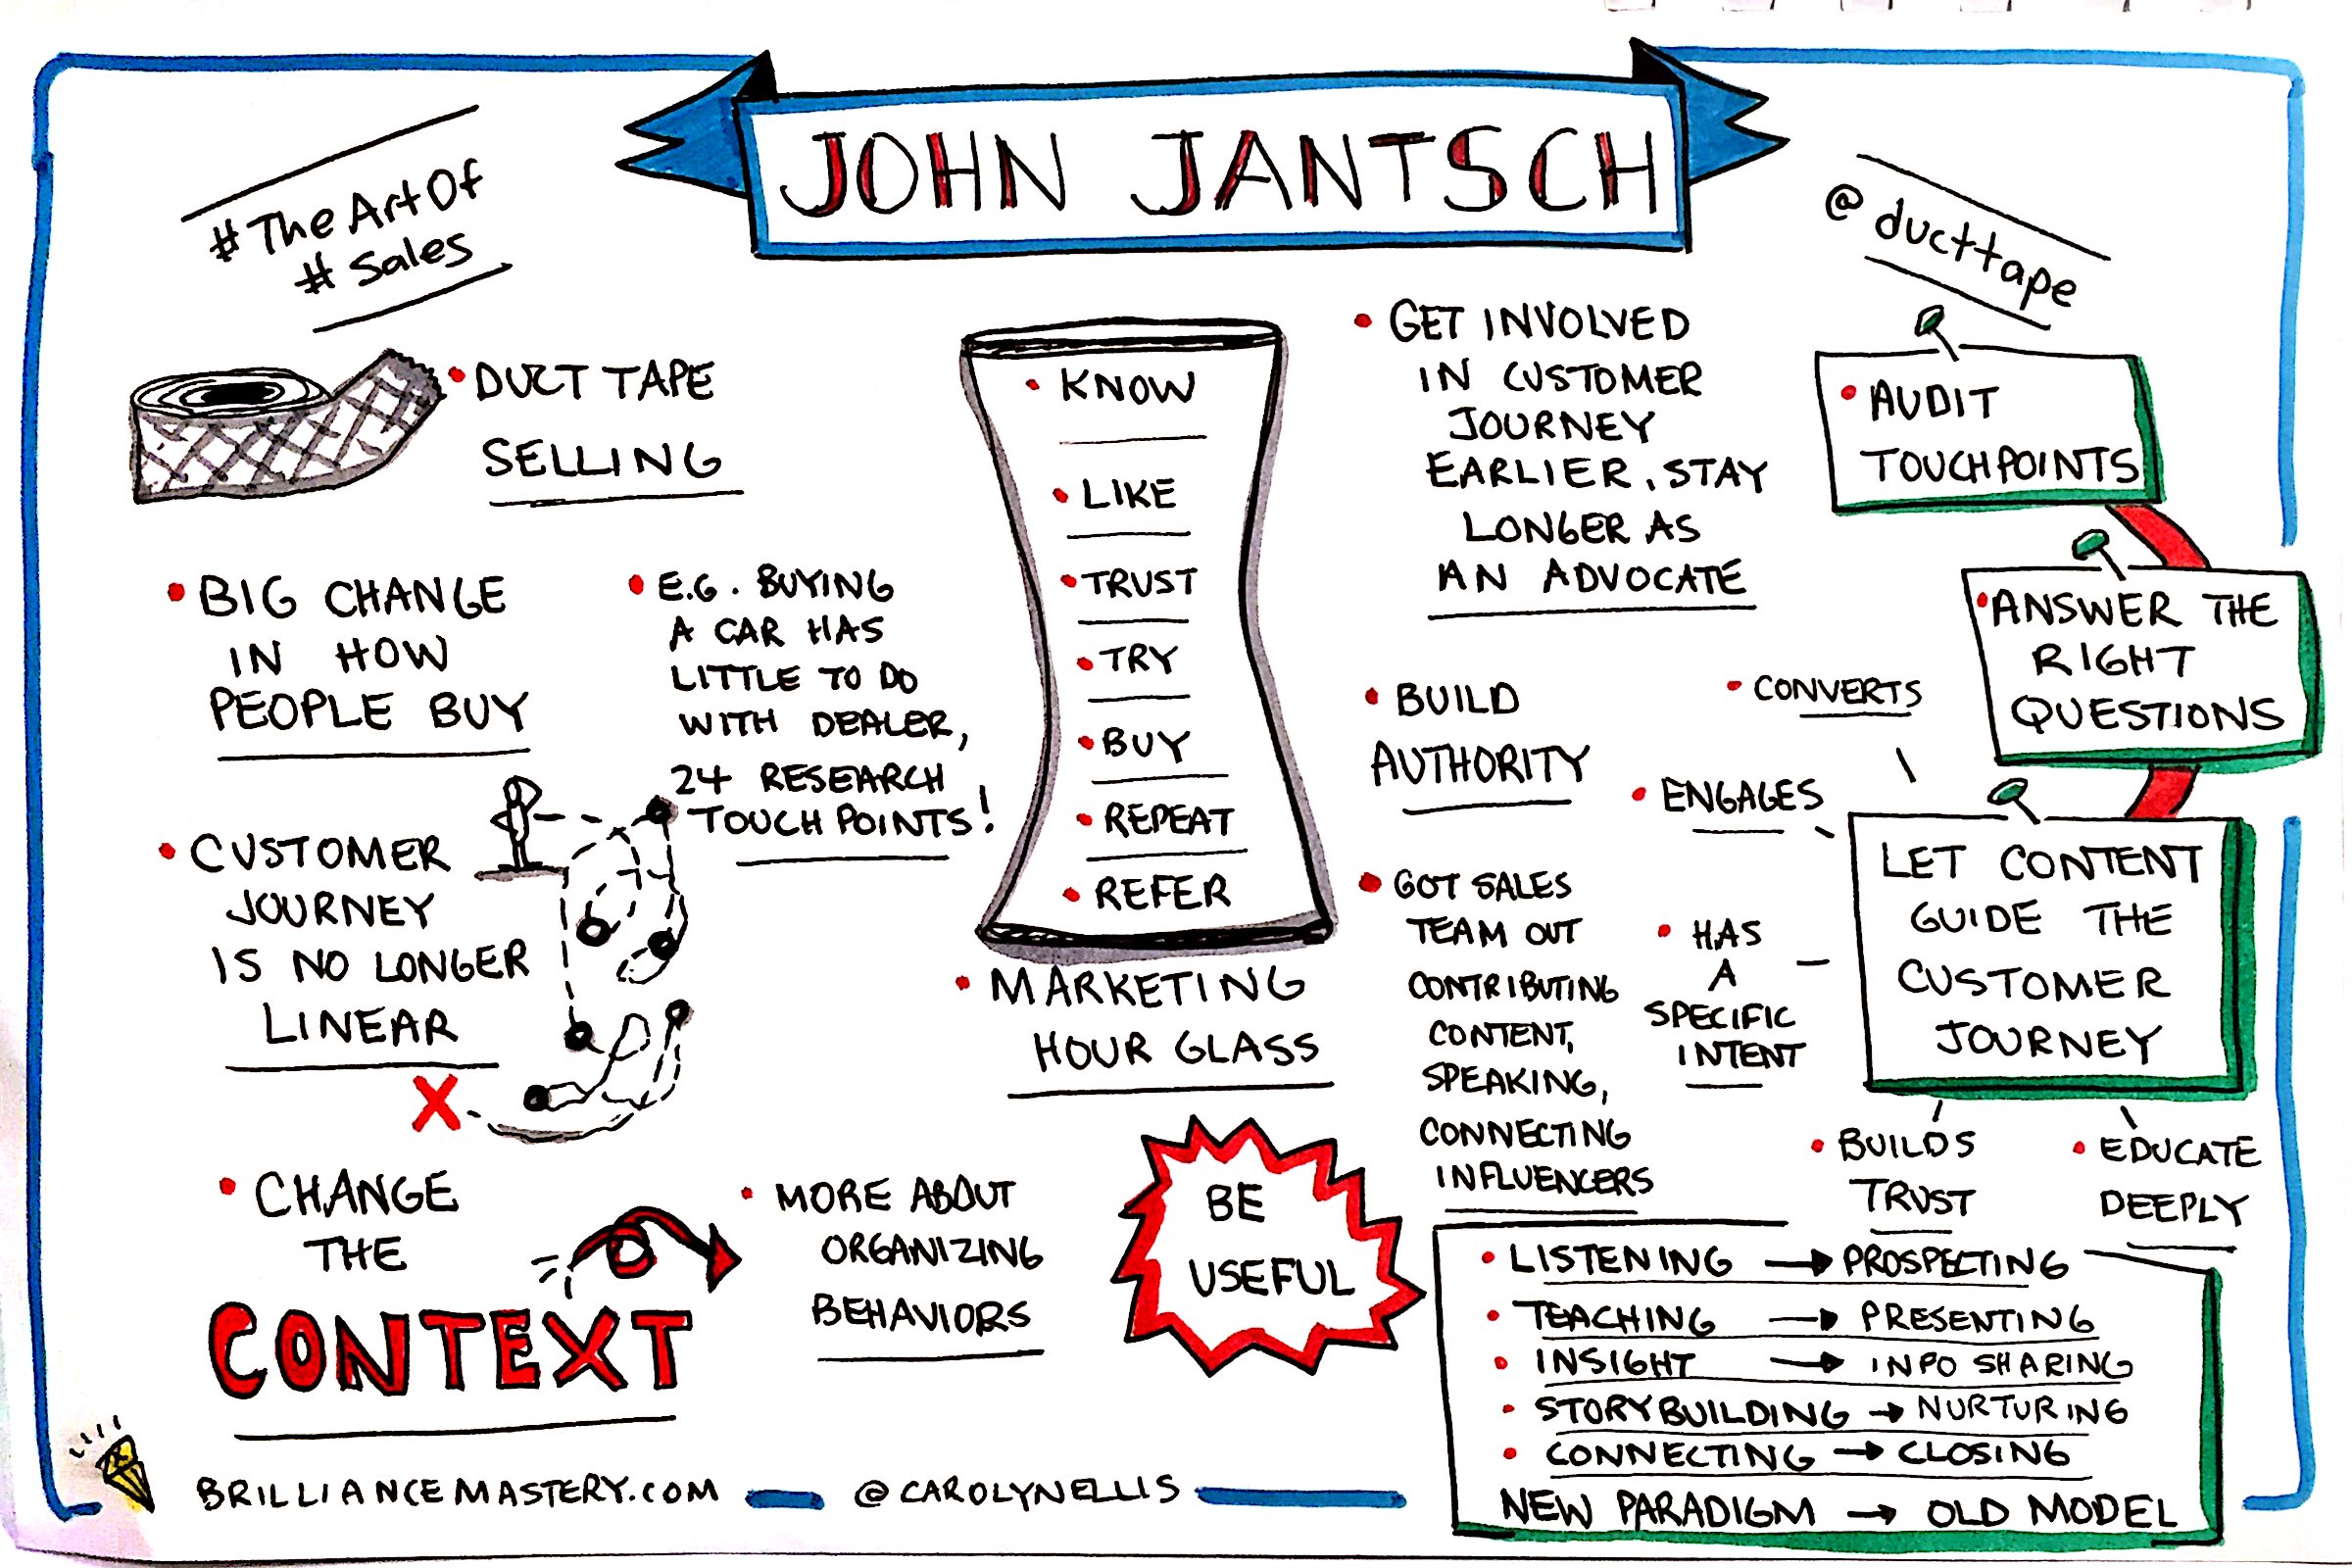 JOHN JANTSCH
#The Art Of
# Sales
@ducttape
• DUCT TAPE
SELLING
• BIG CHANGE
IN HOW
PEOPLE BUY
• E.G. BUYING
A CAR HAS
LITTLE TO DO
WITH DEALER,
24 RESEARCH
TOUCH POINTS!
• CUSTOMER
JOURNEY
IS NO LONGER
LINEAR
X
• CHANGE
THE
CONTEXT
• MORE ABOUT
ORGANIZING
BEHAVIORS
• KNOW
• LIKE
• TRUST
• TRY
• BUY
• REPEAT
• REFER
• MARKETING
HOUR GLASS
BE
USEFUL
• GET INVOLVED
IN CUSTOMER
JOURNEY
EARLIER, STAY
LONGER AS
AN ADVOCATE
• BUILD
AUTHORITY
• GOT SALES
TEAM OUT
CONTRIBUTING
CONTENT,
SPEAKING,
CONNECTING
INFLUENCERS
• AUDIT
TOUCHPOINTS
• ANSWER THE
RIGHT
QUESTIONS
LET CONTENT
GUIDE THE
CUSTOMER
JOURNEY
• CONVERTS
• ENGAGES
• HAS
A
SPECIFIC
INTENT
• BUILDS
TRUST
• EDUCATE
DEEPLY
• LISTENING → PROSPECTING
• TEACHING → PRESENTING
• INSIGHT → INFO SHARING
• STORYBUILDING → NURTURING
• CONNECTING → CLOSING
NEW PARADIGM → OLD MODEL
BRILLIANCEMASTERY.COM
@CAROLYNELLIS